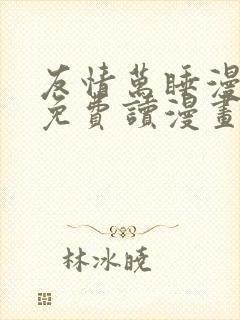 友情萬睡漫
免費讀漫畫
林冰曉